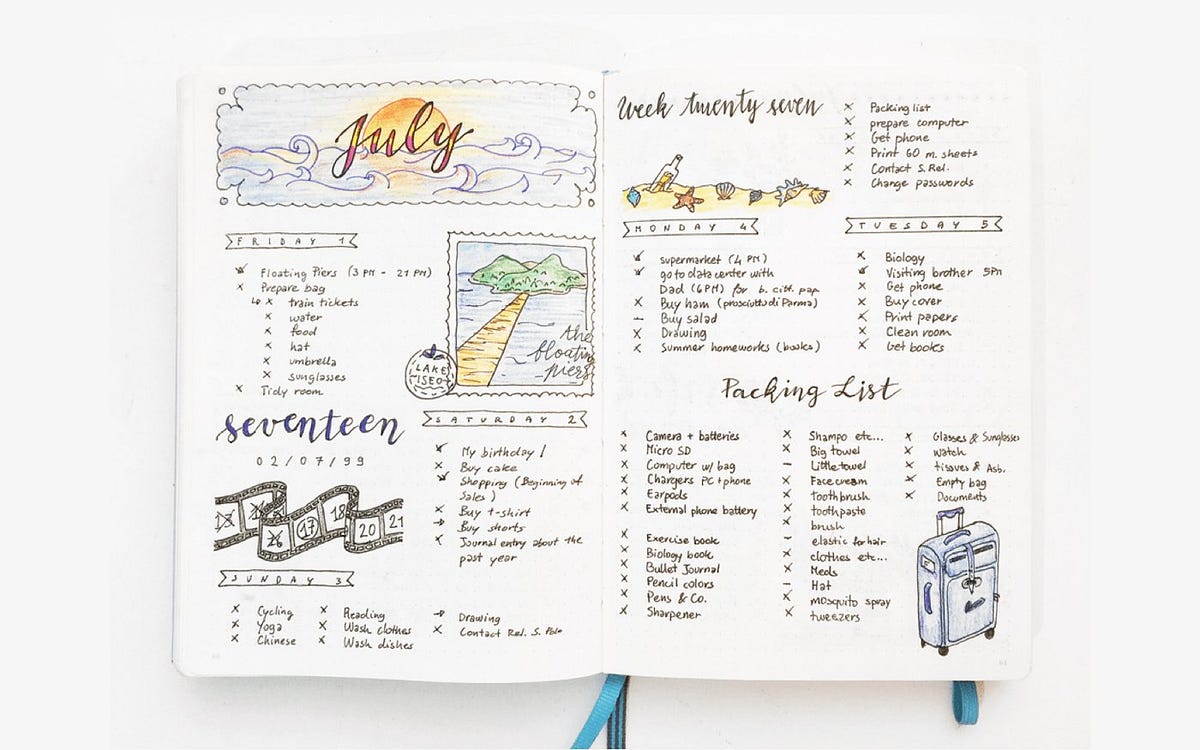 July
FRIDAY 1
Floating Piers (3 PM - 21 PM)
x Prepare bag
↳ x train tickets
x water
x food
x hat
x umbrella
x sunglasses
x Tidy room
the
floating
piers
LAKE
ISEO
seventeen
02/07/99
15 16 17 18 20 21
SATURDAY 2
My birthday!
x Buy cake
Shopping (Beginning of
Sales)
x Buy t-shirt
→ Buy shorts
x Journal entry about the
past year
SUNDAY 3
x Cycling
x Yoga
x Chinese
x Reading
x Wash clothes
x Wash dishes
→ Drawing
x Contact Rel. S. Polo
Week twenty seven
x Packing list
x prepare computer
x Get phone
x Print 60 m. sheets
x Contact S. Rel.
x Change passwords
MONDAY 4
supermarket (4 PM)
go to data center with
Dad (6PM) for b. citt. pap.
x Buy ham (prosciutto di Parma)
- Buy salad
x Drawing
x Summer homeworks (books)
TUESDAY 5
x Biology
Visiting brother 5PM
x Get phone
x Buy cover
x Print papers
x Clean room
x Get books
Packing List
x Camera + batteries
x Micro SD
x Computer w/ bag
x Chargers PC + phone
x Earpods
x External phone battery
x Exercise book
x Biology book
x Bullet Journal
x Pencil colors
x Pens & Co.
x Sharpener
x Shampo etc...
x Big towel
- Little towel
x Face cream
x toothbrush
x toothpaste
x brush
- elastic for hair
x clothes etc...
x Meds
- Hat
x mosquito spray
x tweezers
x Glasses & Sunglasses
x watch
x tissues & Asb.
x Empty bag
x Documents